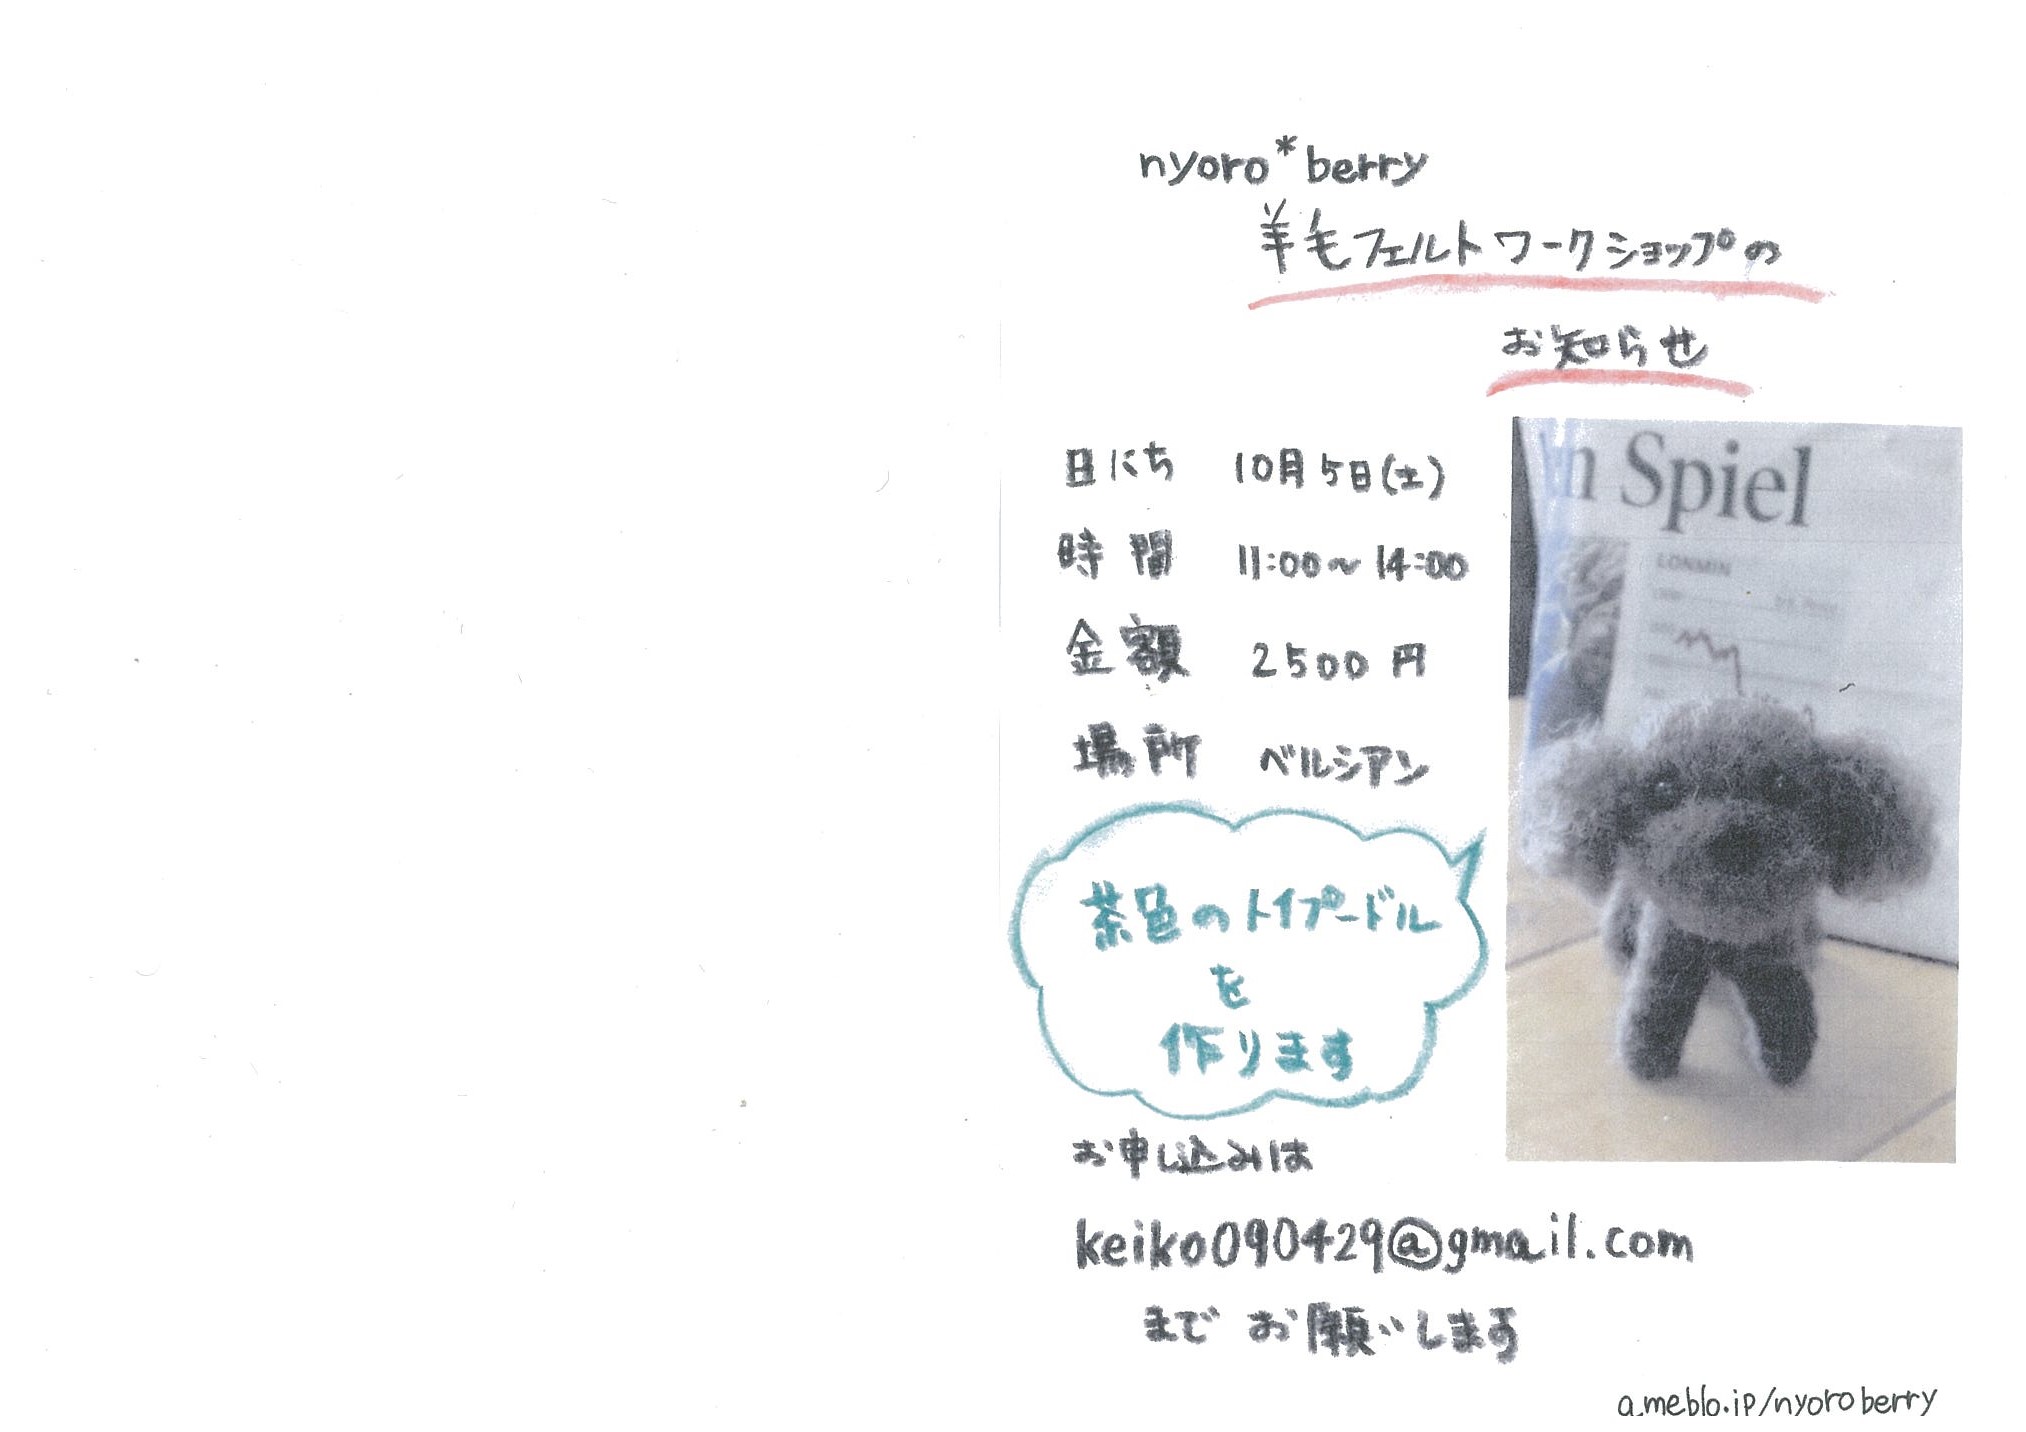 nyoro*berry
羊毛フェルトワークショップの
お知らせ
日にち 10月5日(土)
時間 11:00~14:00
金額 2500円
場所 ベルシアン
茶色のトイプードル
を
作ります
お申し込みは
keiko090429@gmail.com
まで お願いします
ameblo.jp/nyoroberry
n Spiel
LONMIN